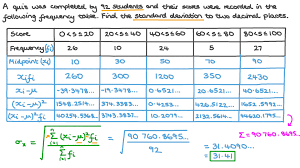 A quiz was completed by 92 students and their scores were recorded in the
following frequency table. Find the standard deviation to two decimal places.
Score 0≤s≤20 20<s≤40 40<s≤60 60<s≤80 80<s≤100
Frequency(fi) 26 10 24 5 27
Midpoint (xi) 10 30 50 70 90
xifi 260 300 1200 350 2430
xi-μ -39.3478... -19.3478... 0.6521... 20.6521... 40.6521...
(xi-μ)² 1548.2514... 374.3383... 0.4253... 426.5122... 1652.5992...
(xi-μ)²fi 40254.5368... 3743.3837... 10.2079... 2132.5614... 44620.1795...
Σ = 90 760.8695...
σx = √ Σ (xi-μ)²fi / Σ fi = √ 90 760.8695... / 92 = 31.4090...
= 31.41